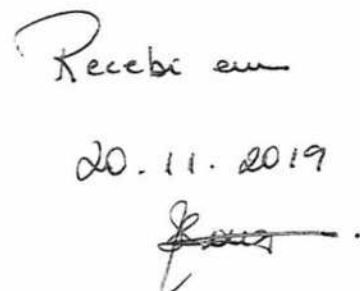 Recebi em
20.11.2019